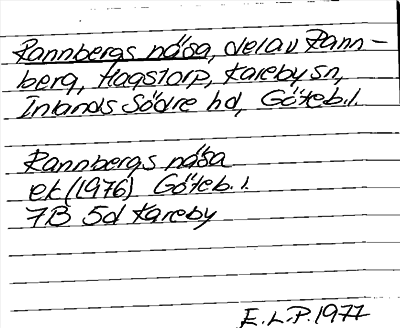 Rannbergs nåsa, del av Rann-
berg, Hagstorp, Kareby sn,
Inlands Södre hd, Göteb.l.
Rannbergs nåsa
ek (1976) Göteb.l.
7B 5d Kareby
E.L.P. 1977